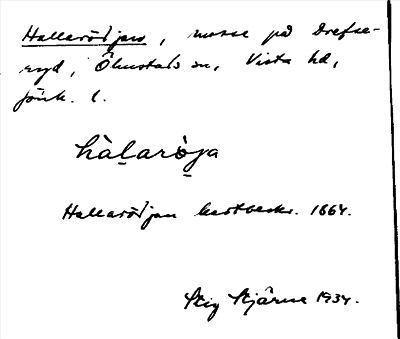 Hallarödjan, mosse på Drefse-
ryd, Ölmstads sn, Vista hd,
Jönk. l.
hàḷarò̱ja
Hallarödjan kartbeskr. 1864.
Stig Stjärne 1934.